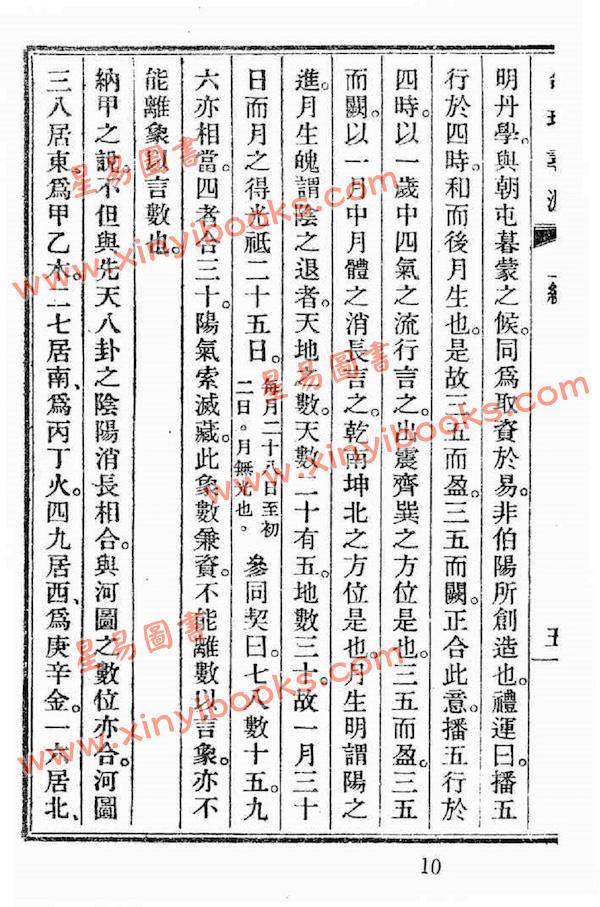 明丹學與朝屯暮蒙之候同爲取資於易非伯陽所創造也。禮運曰播五
行於四時和而後月生也是故三五而盈三五而闕。正合此意播五行於
四時。以一歲中四氣之流行言之。出震齊巽之方位是也。三五而盈。三五
而闕。以一月中月體之消長言之。乾南坤北之方位是也。月生明謂陽之
進。月生魄謂陰之退者。天地之數。天數二十有五。地數三十。故一月三十
日而月之得光祗二十五日。每月二十八日至初二日。月無光也。參同契曰。七八數十五。九
六亦相當。四者合三十。陽氣索滅藏。此象數兼資。不能離數以言象。亦不
能離象以言數也。
納甲之說。不但與先天八卦之陰陽消長相合。與河圖之數位亦合。河圖
三八居東。爲甲乙木。二七居南、爲丙丁火。四九居西、爲庚辛金。一六居北、
五
10
星易圖書
www.xinyibooks.com
星易圖書
www.xinyibooks.com
星易圖書
www.xinyibooks.com